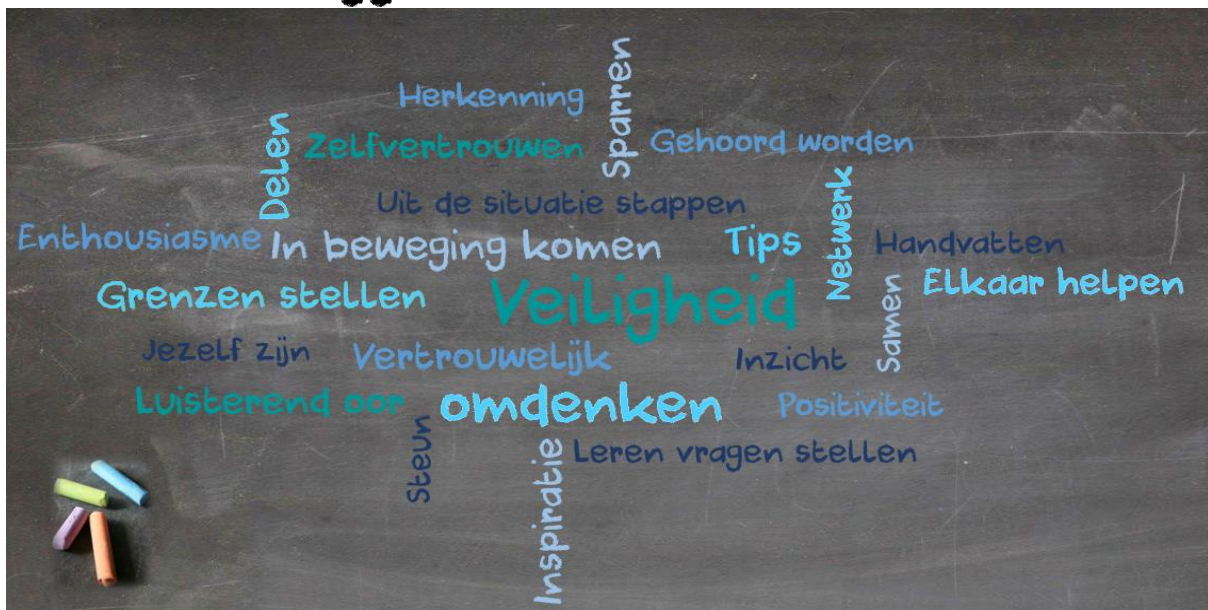 Sparren
Herkenning
Delen
Zelfvertrouwen
Gehoord worden
Uit de situatie stappen
Netwerk
Enthousiasme
In beweging komen
Tips
Handvatten
Grenzen stellen
Veiligheid
Samen
Elkaar helpen
Jezelf zijn
Vertrouwelijk
Inzicht
Luisterend oor
omdenken
Positiviteit
Steun
Inspiratie
Leren vragen stellen